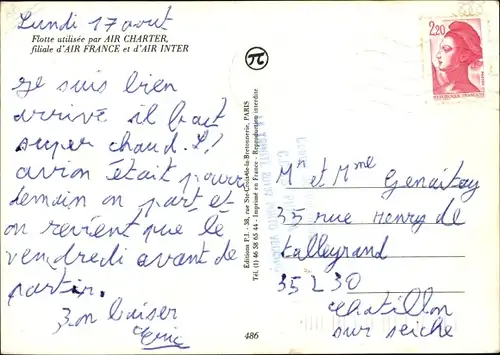 Lundi 17 août
Flotte utilisée par AIR CHARTER,
filiale d'AIR FRANCE et d'AIR INTER
je suis bien
arrivé il faut
super chaud. L'
avion était pourri
demain on part et
on revient que le
vendredi avant de
partir.
Bon baiser
Eric
Editions P.I. - 38, rue Ste-Croix-de-la-Bretonnerie, PARIS
Tél. (1) 46 58 65 44 - Imprimé en France - Reproduction interdite
486
2,20
REPUBLIQUE FRANÇAISE
Mr et Mme Genaitay
35 rue Henry de
talleyrand
35230
chatillon
sur seiche